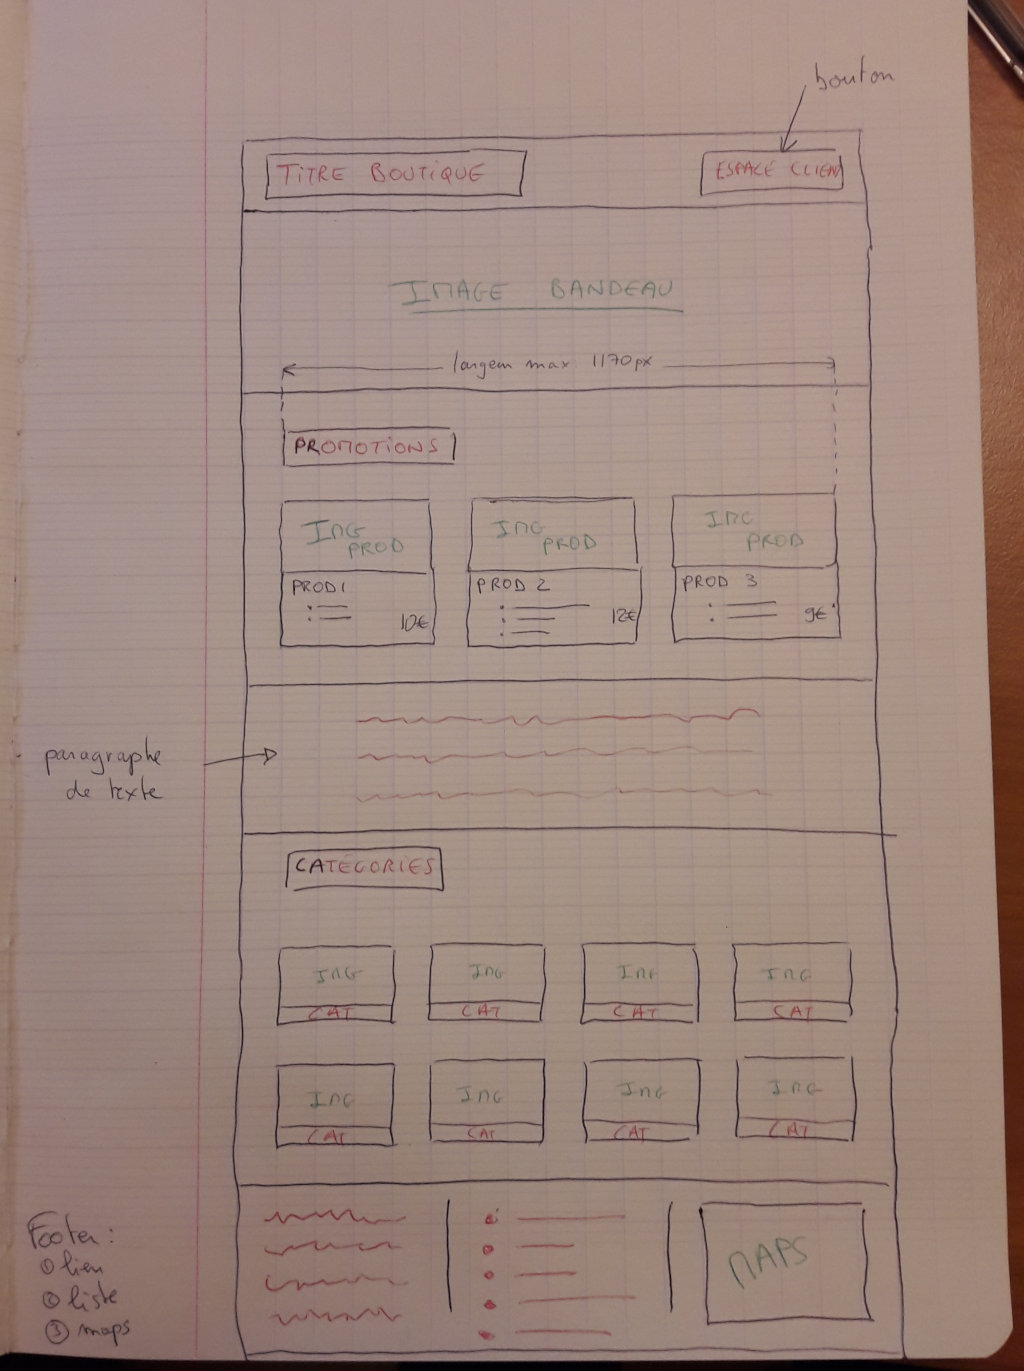 bouton
TITRE BOUTIQUE
ESPACE CLIENT
IMAGE BANDEAU
largeur max 1170px
PROMOTIONS
IMG PROD
IMG PROD
IMG PROD
PROD 1
10€
PROD 2
12€
PROD 3
9€
paragraphe
de texte
CATÉGORIES
IMG
IMG
IMG
IMG
CAT
CAT
CAT
CAT
IMG
IMG
IMG
IMG
CAT
CAT
CAT
CAT
Footer :
① lien
② liste
③ maps
MAPS